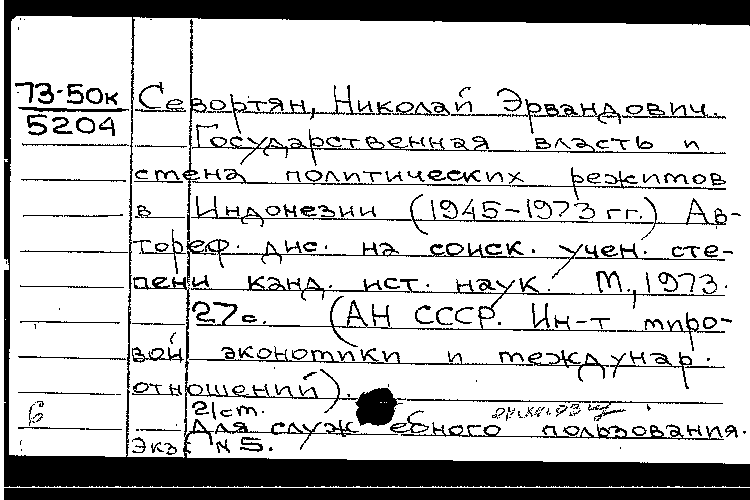 73-50к
5204
Севортян, Николай Эрвандович.
Государственная власть и
смена политических режимов
в Индонезии (1945-1973 гг.) Ав-
тореф. дис. на соиск. учен. сте-
пени канд. ист. наук. М., 1973.
27с. (АН СССР. Ин-т миро-
вой экономики и междунар.
отношений).
21 ст.
б
Для служебного пользования.
Экз. N 5.